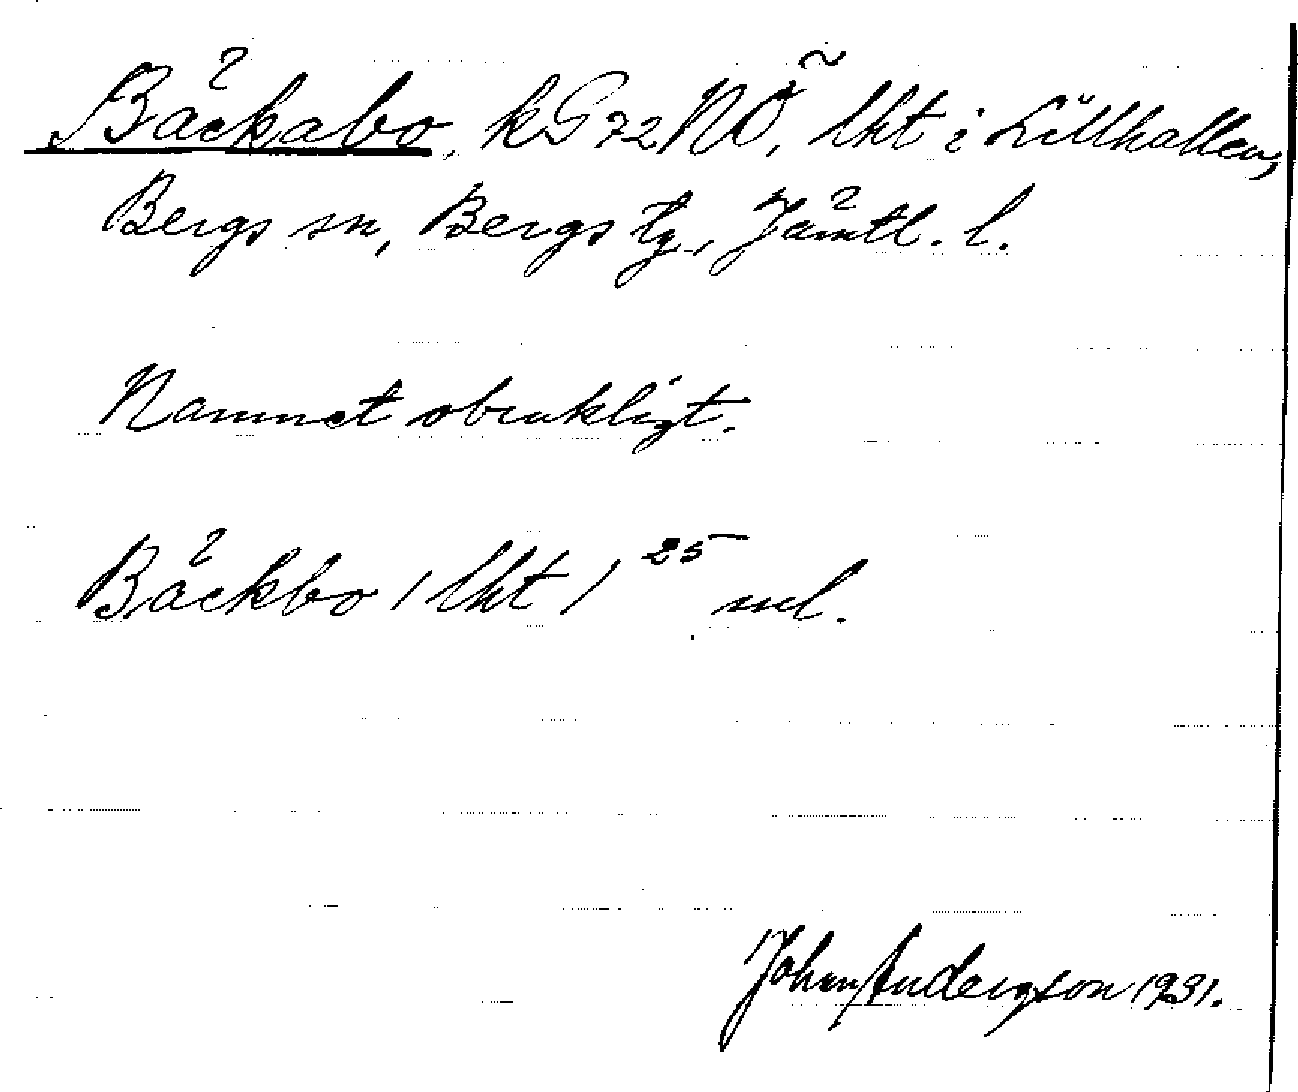 Bäckabo, kG72NÖ, lht i Lillhallen,
Bergs sn, Bergs tg, Jämtl. l.
Namnet obrukligt.
Bäckbo / lht / 25 ml.
Johan Andersson 1931.